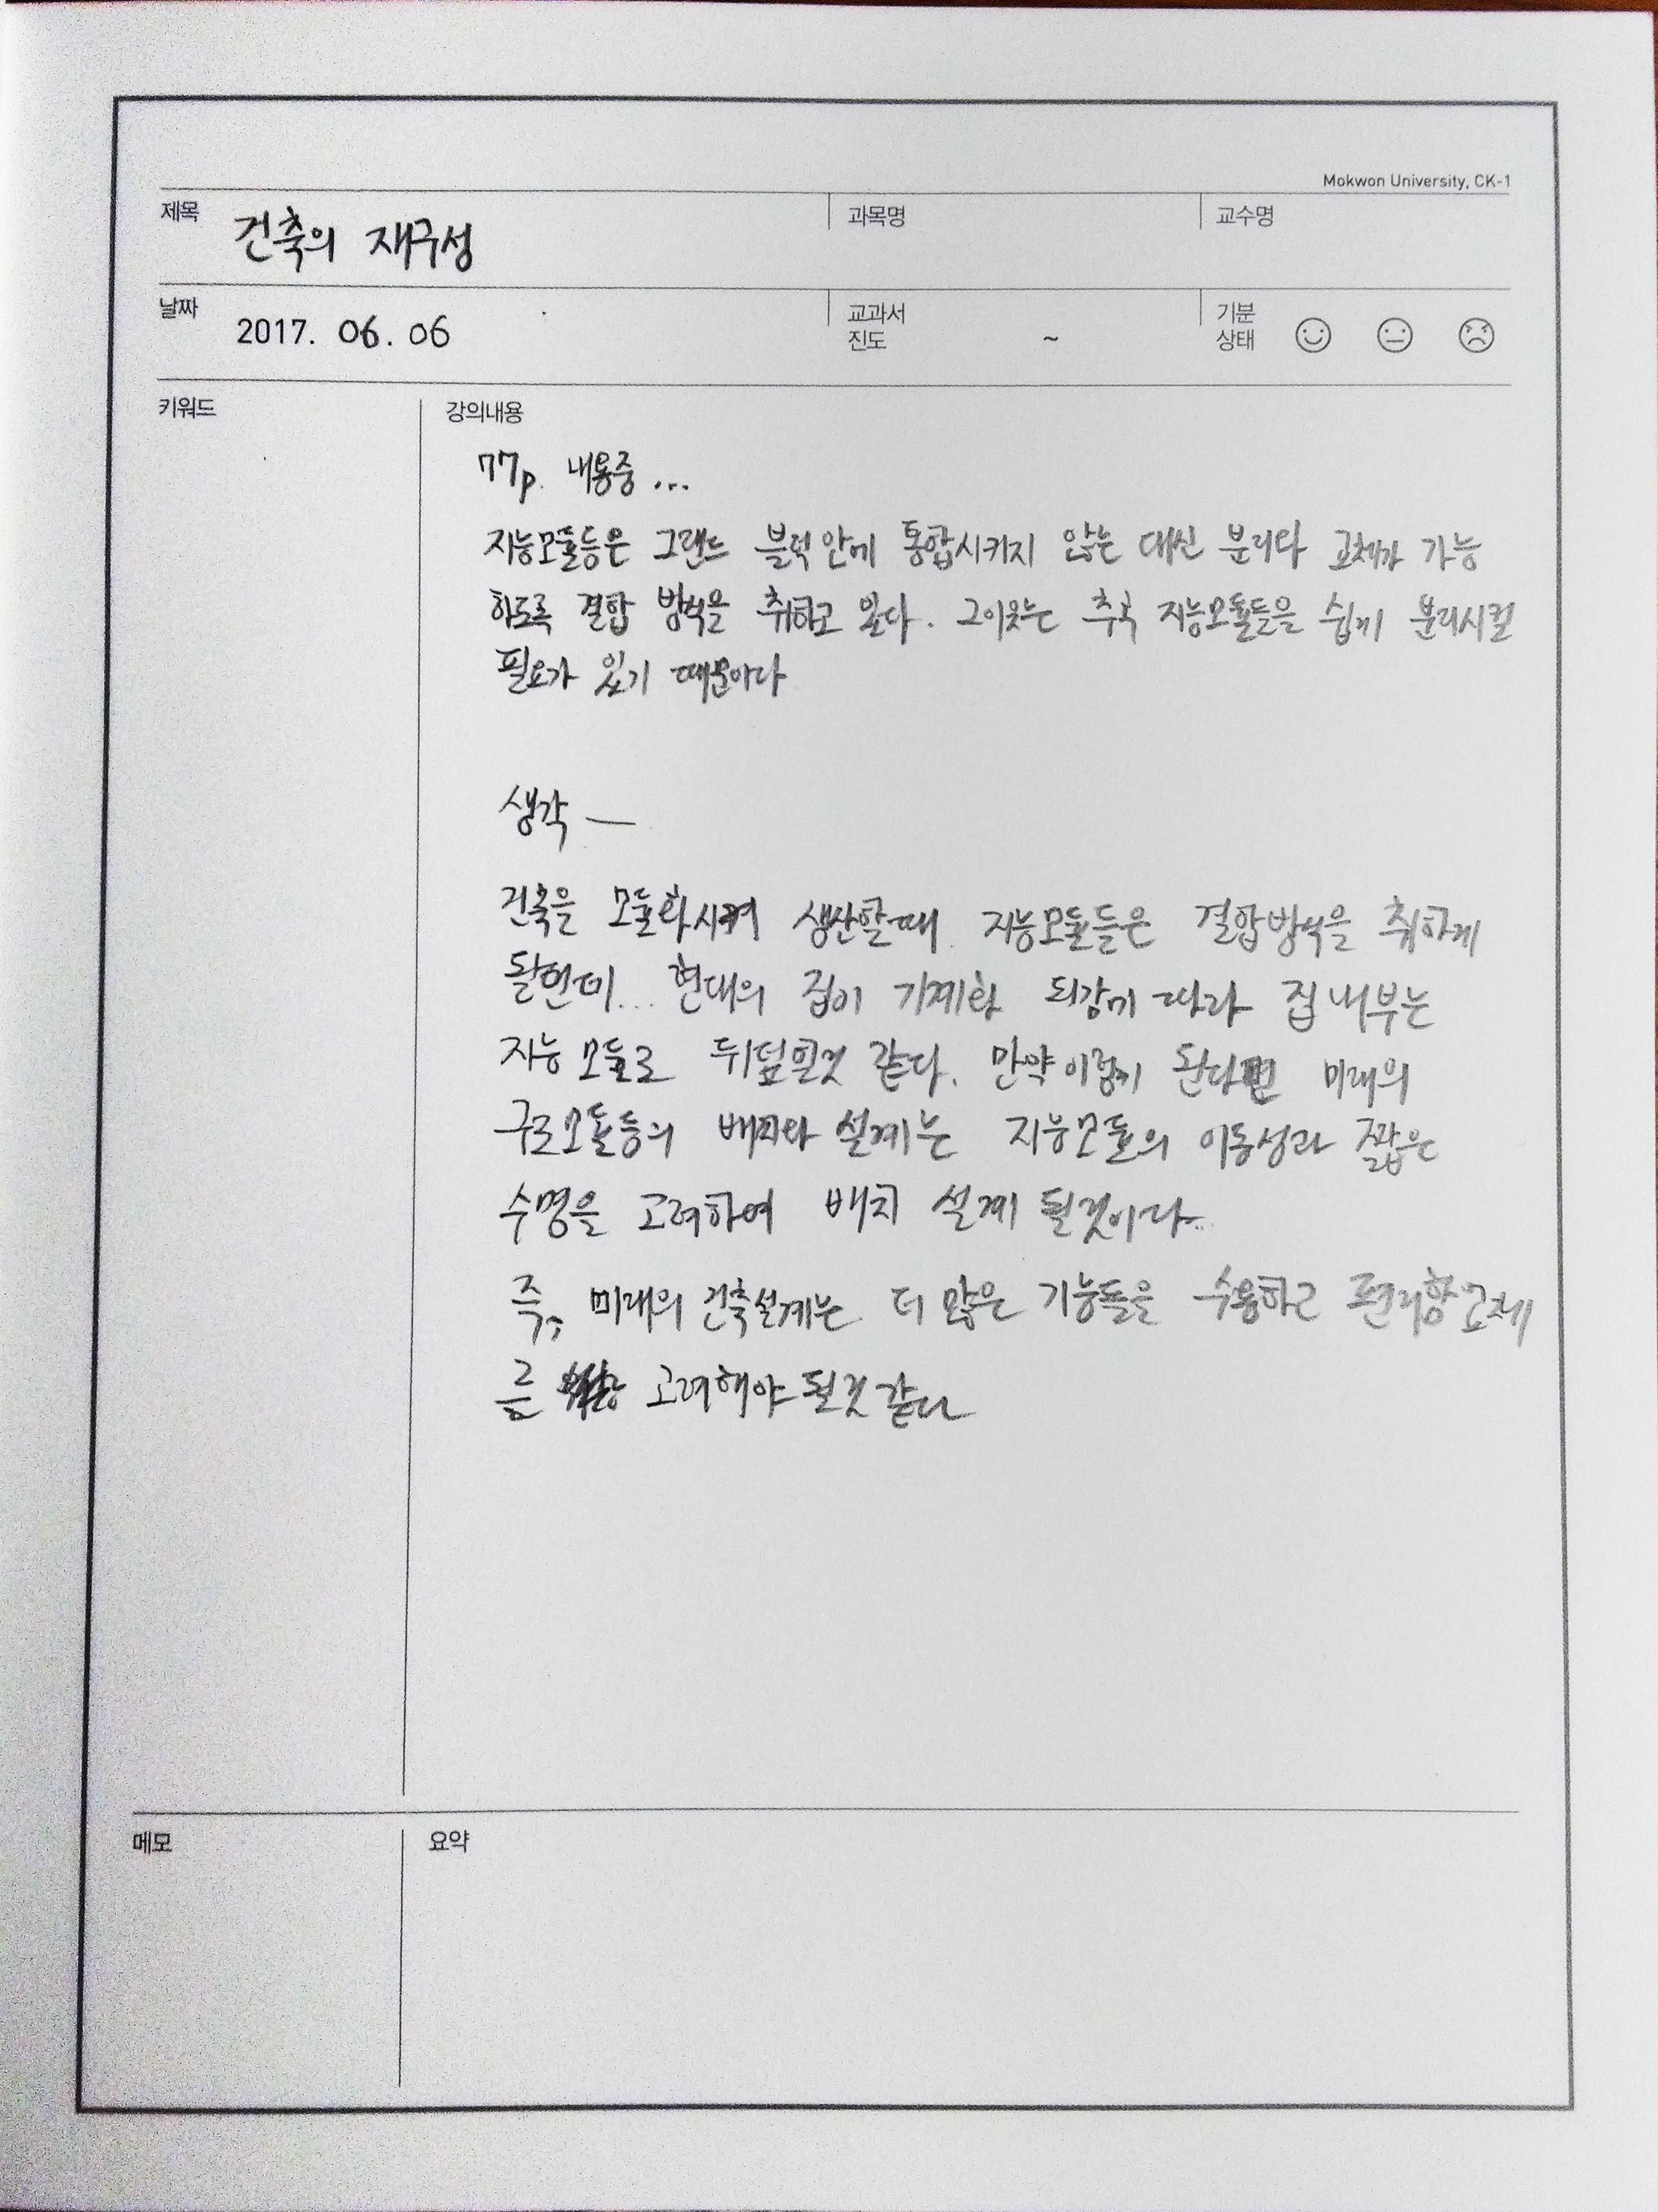 Mokwon University, CK-1
제목 건축의 재구성 과목명 교수명
날짜 2017. 06. 06 교과서 진도 ~ 기분 상태
키워드 강의내용
77p. 내용중...
지능모듈들은 그랜드 블럭안에 통합시키지 않는 대신 분리와 교체가 가능
하도록 결합 방식을 취하고 있다. 그이유는 추후 지능모듈들을 쉽게 분리시킬
필요가 있기 때문이다
생각 —
건축을 모듈화시켜 생산할때 지능모듈들은 결합방식을 취하게
될텐데... 현대의 집이 기계화 되감에 따라 집내부는
지능 모듈로 뒤덮일것 같다. 만약 이렇게 된다면 미래의
구조모듈들의 배치와 설계는 지능모듈의 이동성과 짧은
수명을 고려하여 배치 설계 될것이다..
즉, 미래의 건축설계는 더 많은 기능들을 수용하고 편리한교체
를 고려해야 될것 같다
메모 요약